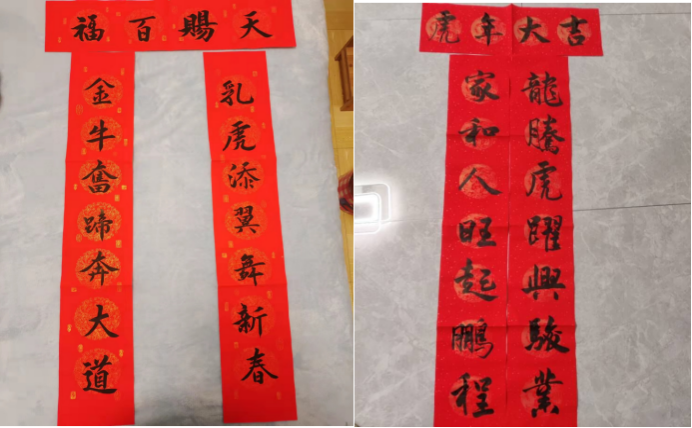 天賜百福
乳虎添翼舞新春
金牛奮蹄奔大道
虎年大吉
龍騰虎躍興駿業
家和人旺起鵬程